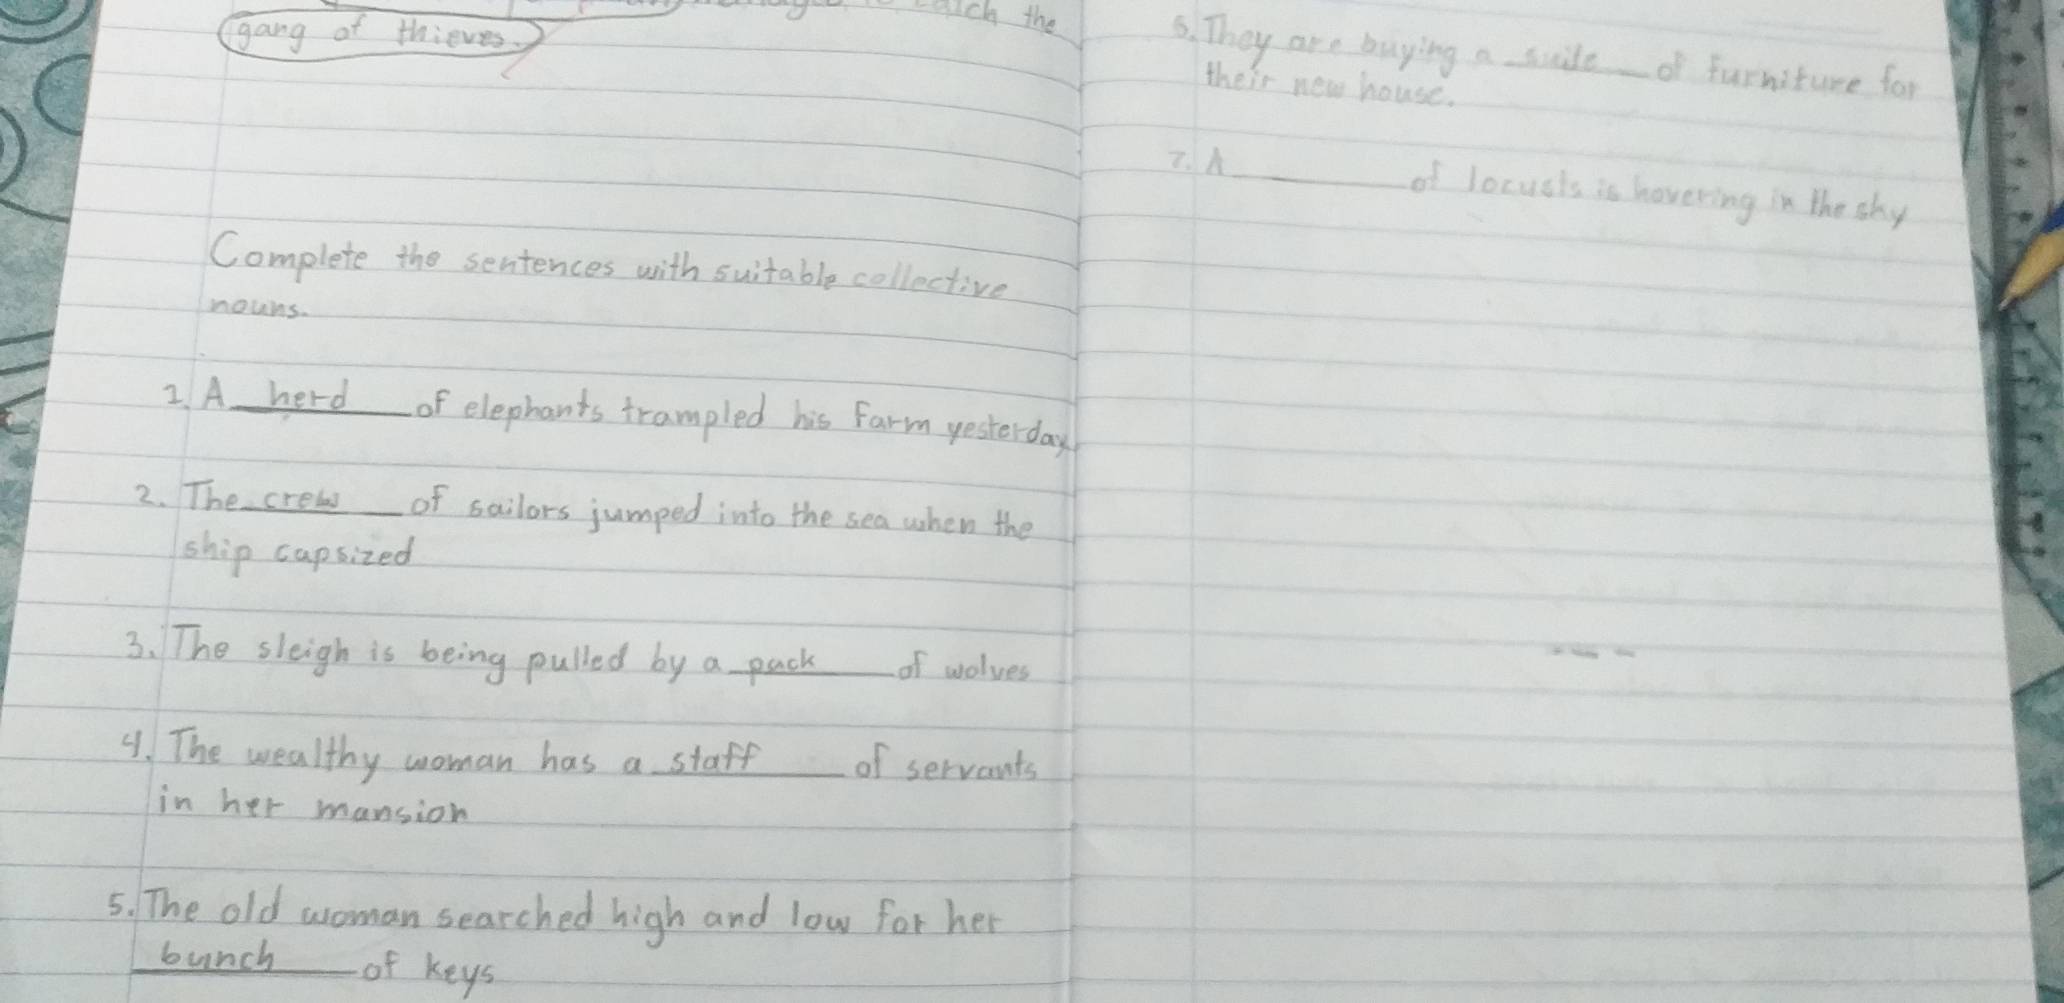 catch the
gang of thieves.
Complete the sentences with suitable collective
nouns.
1. A herd of elephants trampled his farm yesterday
2. The crew of sailors jumped into the sea when the
ship capsized
3. The sleigh is being pulled by a pack of wolves
4. The wealthy woman has a staff of servants
in her mansion
5. The old woman searched high and low for her
bunch of keys
6. They are buying a suite of furniture for
their new house.
7. A ______ of locusts is hovering in the sky